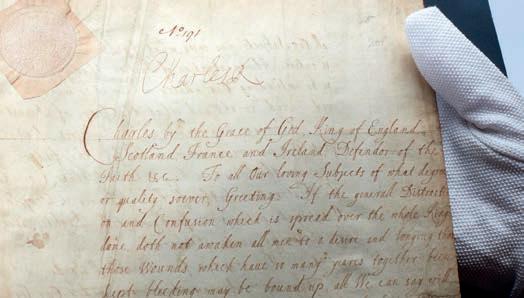 No. 191
Charles R
Charles by the Grace of God, King of England
Scotland France and Ireland Defendor of the
Faith &c. To all Our loving Subjects of what degree
or quality soever, Greeting. If the general Distracti
on and Confusion which is spread over the whole King
dome, doth not awaken all men to a desire and longing that
those Wounds which have so many years together been
kept bleeding may be bound up, all We can say will